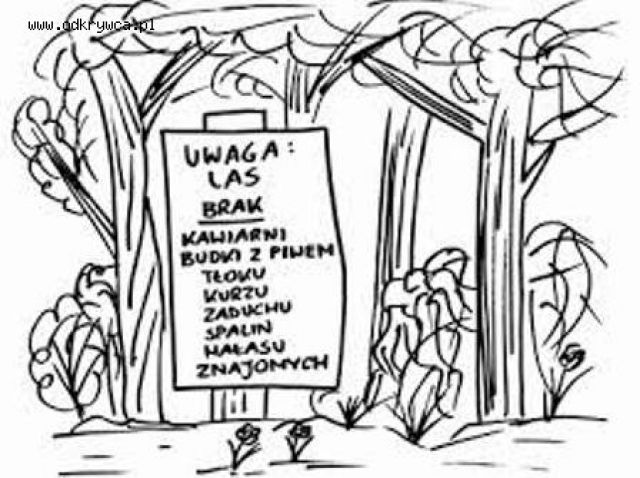 www.odkrywca.pl
UWAGA:
LAS
BRAK
KAWIARNI
BUDKI Z PIWEM
TŁOKU
KURZU
ZADUCHU
SPALIN
HAŁASU
ZNAJOMYCH